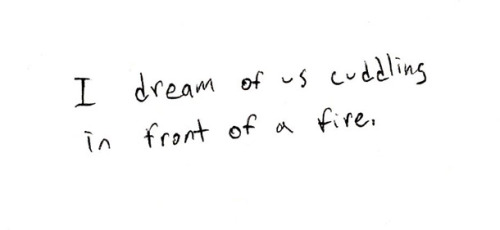 I dream of us cuddling
in front of a fire.